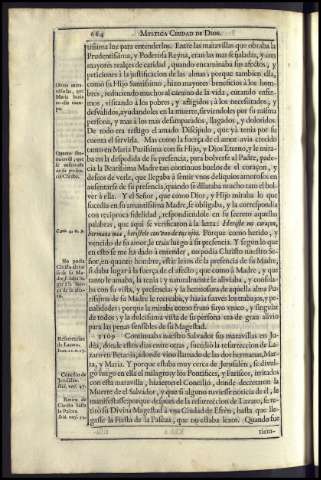 664 MYSTICA CIUDAD DE DIOS.
tissima luz para entenderlos. Entre las maravillas que obraba la
Prudentissima, y Poderosa Reyna, eran las mas señaladas, y con
mayores realces de caridad, quando encaminaba sus afectos, y
peticiones à la justificacion de las almas; porque tambien ella,
como su Hijo Santissimo, hizo mayores beneficios à los hom-
bres, reduciendo muchos al camino de la vida, curando enfer-
mos, visitando à los pobres, y afligidos; à los necessitados, y
desvalidos, ayudandoles en la muerte, sirviendoles por su misma
persona, y mas à los mas desamparados, llagados, y doloridos.
De todo era testigo el amado Discipulo, que yà tenia por su
cuenta el servirla. Mas como la fuerça de el amor avia crecido
tanto en Maria Purissima con su Hijo, y Dios Eterno, y le mira-
ba en la despedida de su presencia, para bolverse al Padre, pade-
cia la Beatissima Madre tan continuos buelos de el coraçon, y
deseos de verle, que llegaba à sentir unos deliquios amorosos en
ausentarse de su presencia, quando se dilataba mucho tanto el bol-
ver à ella. Y el Señor, que como Dios, y Hijo miraba lo que
sucedia en su amantissima Madre, se obligaba, y la correspondia
con reciproca fidelidad, respondiendole en su secreto aquellas
palabras, que aqui se verificaron à la letra: Heriste mi coraçon,
hermana mia, heristele con uno de tus ojos. Porque como herido, y
vencido de su amor, le traìa luego à su presencia. Y segun lo que
en esto se me ha dado à entender, no podia Christo nuestro Se-
ñor, en quanto hombre, estàr lexos de la presencia de su Madre,
si daba lugar à la fuerça de el afecto, que como à Madre, y que
tanto le amaba, la tenia; y naturalmente le aliviaba, y consola-
ba con su vista, y presencia; y la hermosura de aquella alma Pu-
rissima de su Madre le recreaba, y hazia suaves los trabajos, y pe-
nalidades; porque la miraba como fruto suyo unico, y singular
de todos; y la dulcissima vista de su persona era de gran alivio
para las penas sensibles de su Magestad.
1109 Continuaba nuestro Salvador sus maravillas en Ju-
dèa, donde estos dias, entre otras, sucediò la resurreccion de La-
zaro en Betania, adonde vino llamado de las dos hermanas, Mar-
ta, y Maria. Y porque estaba muy cerca de Jerusalèn, se divul-
gò luego en ella el milagro; y los Pontifices, y Fariseos, irritados
con esta maravilla, hizieron el Concilio, donde decretaron la
Muerte de el Salvador, y que si alguno tuviesse noticia de el, le
manifestasse; porque despues de la resurreccion de Lazaro, se re-
tirò su Divina Magestad à una Ciudad de Efrèn, hasta que lle-
gasse la Fiesta de la Pascua, que no estaba lexos. Quando fue
tiem-
Cant. 4. v. 9.
Resurreccion
de Lazaro.
Joan. 11. v. 17.
Concilio de
Jerusalèn.
Ibid. vers. 47.
Retiro de
Christo hasta
la Pascua.
Ibid. vers. 54.